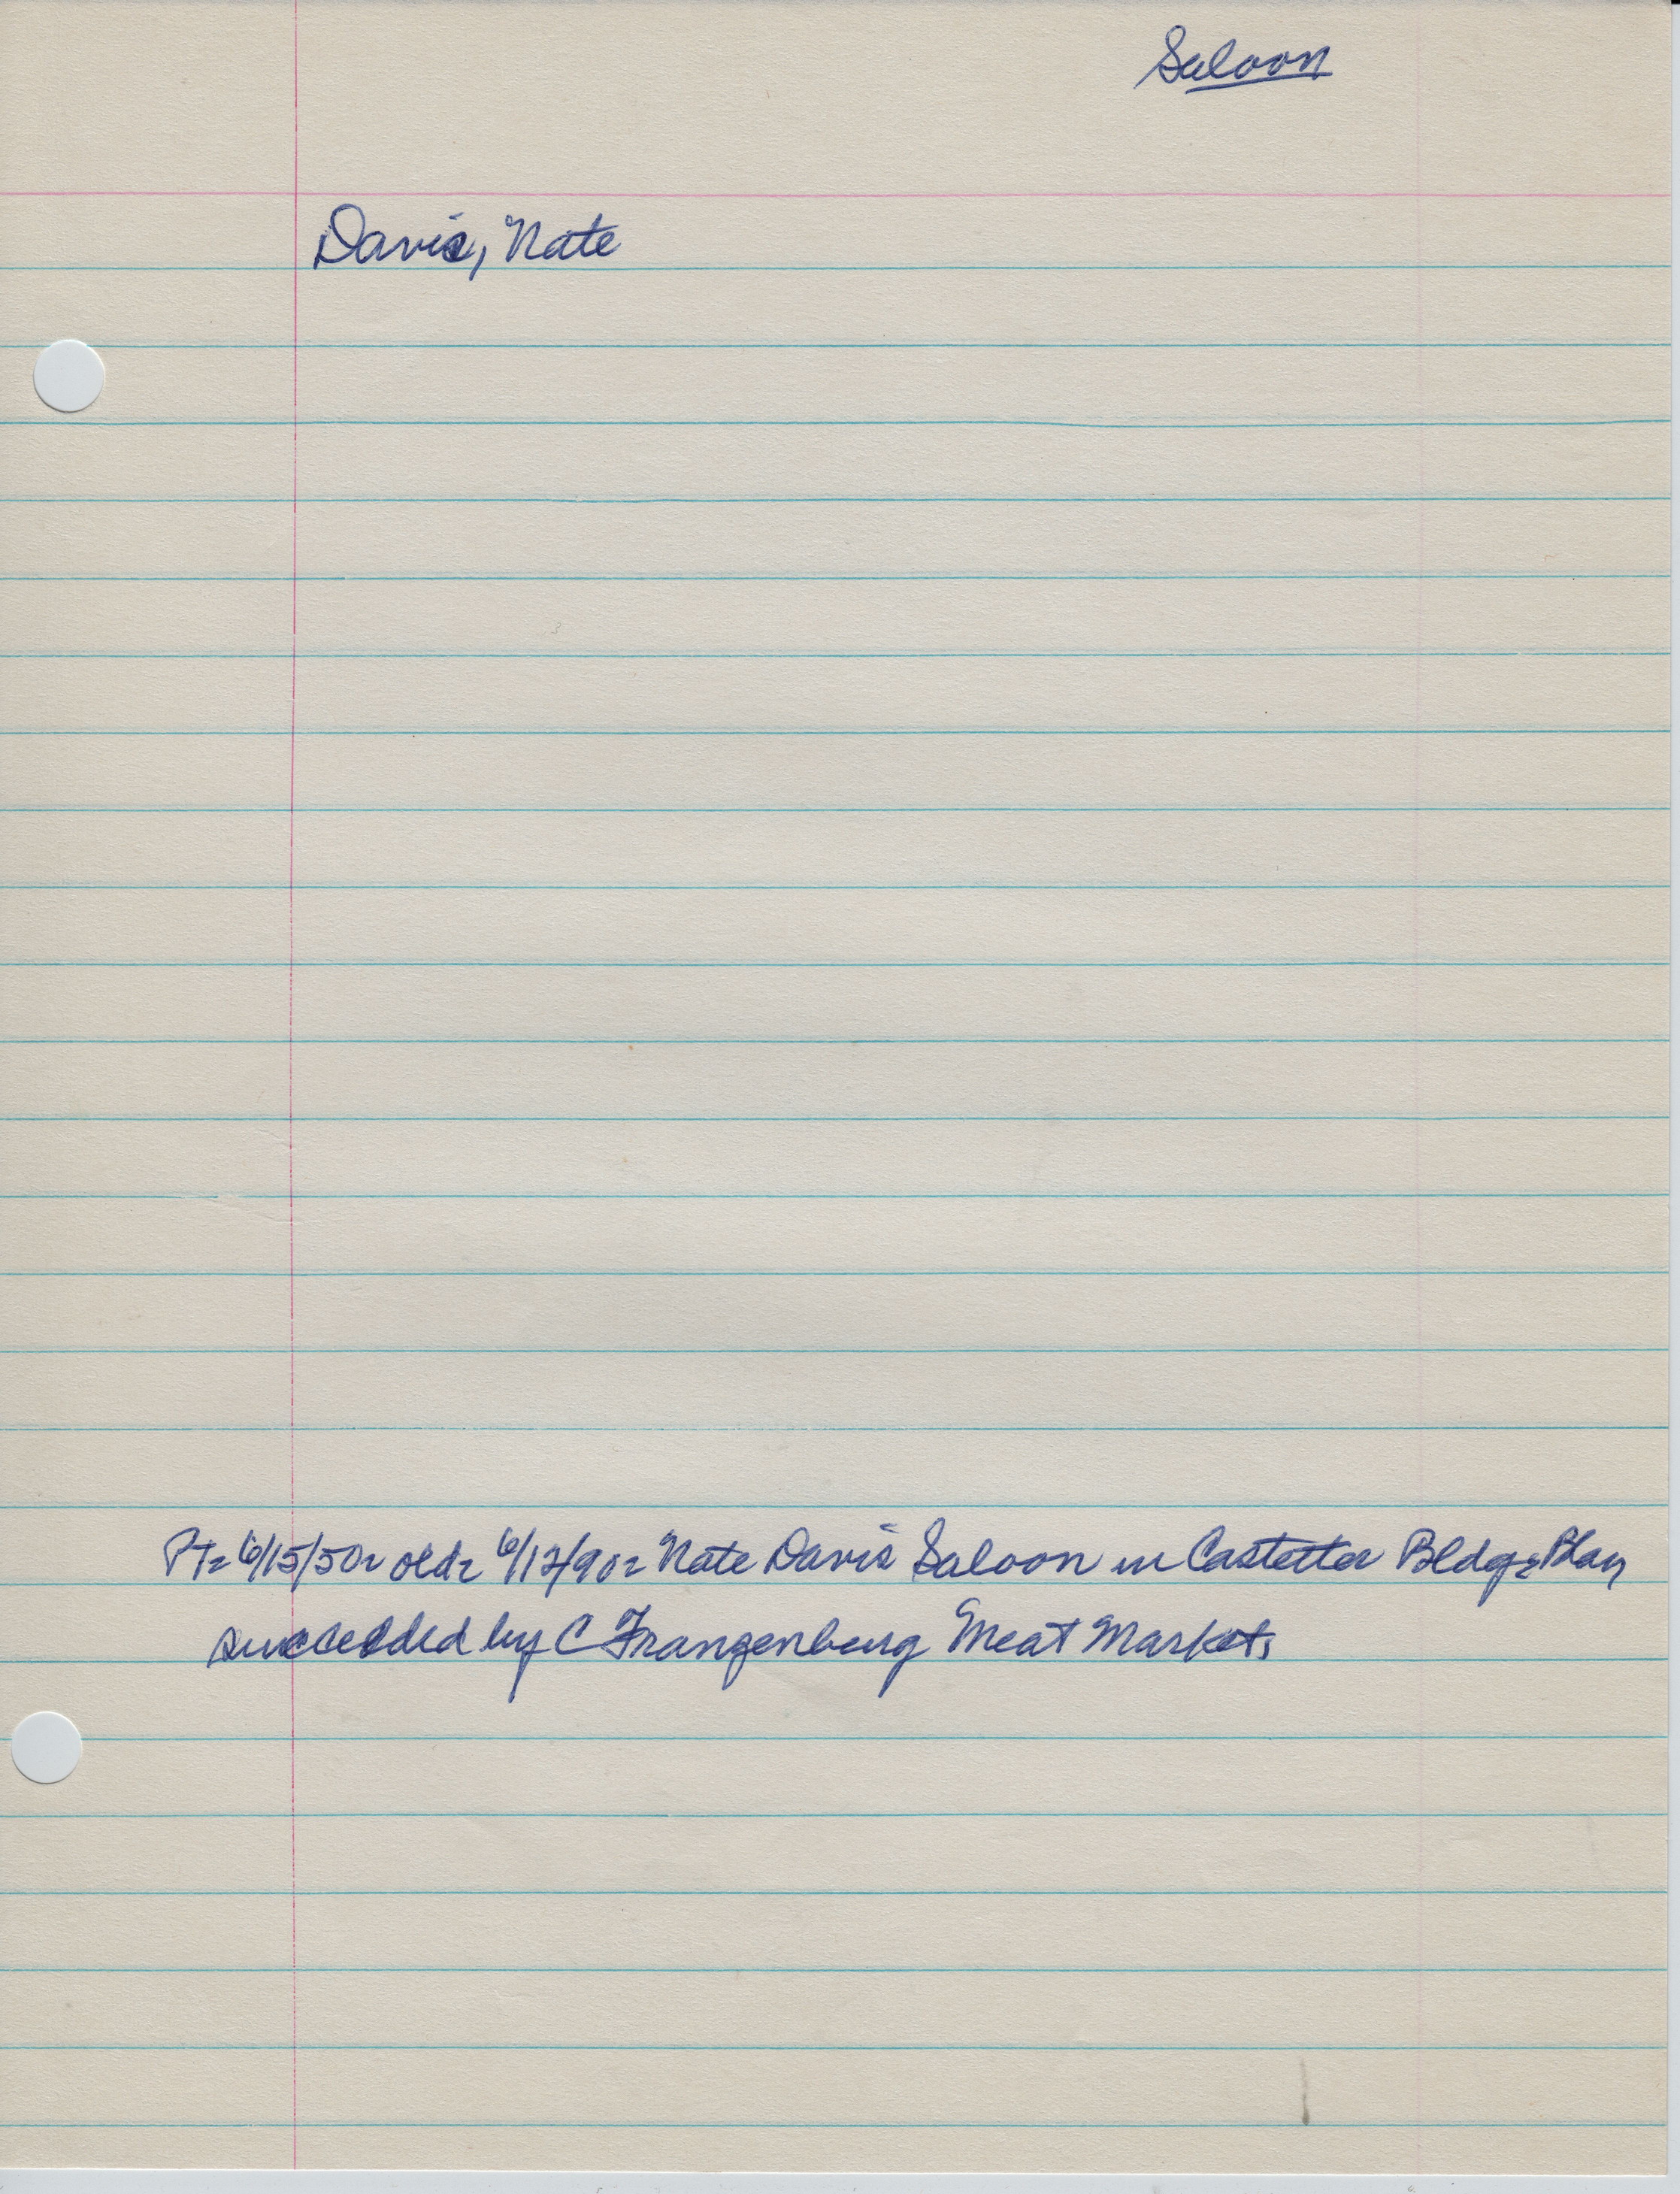 Saloon
Davis, Nate
PT= 6/15/50= old= 6/12/90= Nate Davis Saloon in Castetter Bldg= Blair
succeeded by C Frangenburg Meat Markets